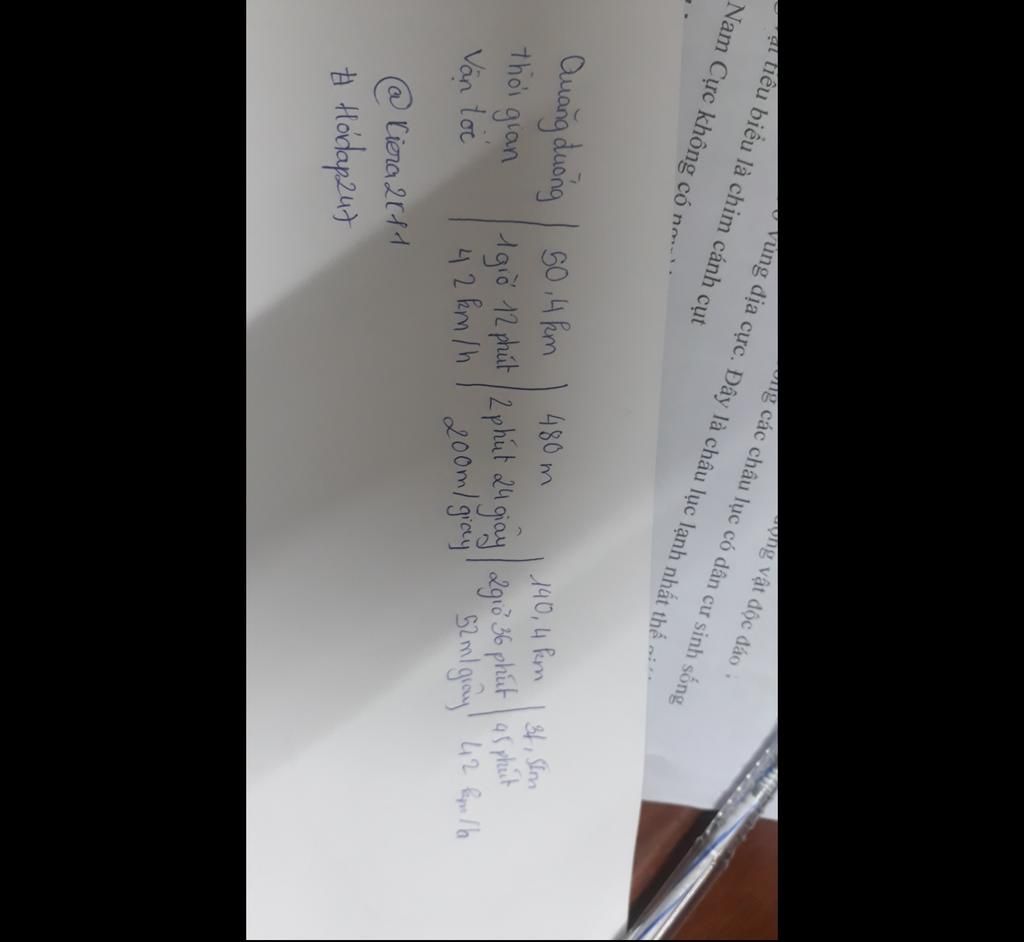 vật tiêu biểu là chim cánh cụt
Nam Cực không có
vùng địa cực. Đây là châu lục lạnh nhất thế
các châu lục có dân cư sinh sống
động vật độc đáo ;
Quãng đường | 50,4km | 480m | 140,4km |
thời gian | 1 giờ 12 phút | 2 phút 24 giây | 2giờ 36 phút | 45 phút
Vận tốc | 42km/h | 200m/giây | 52m/giây | 42 km/h
@kiera2k11
# Hỏidap247